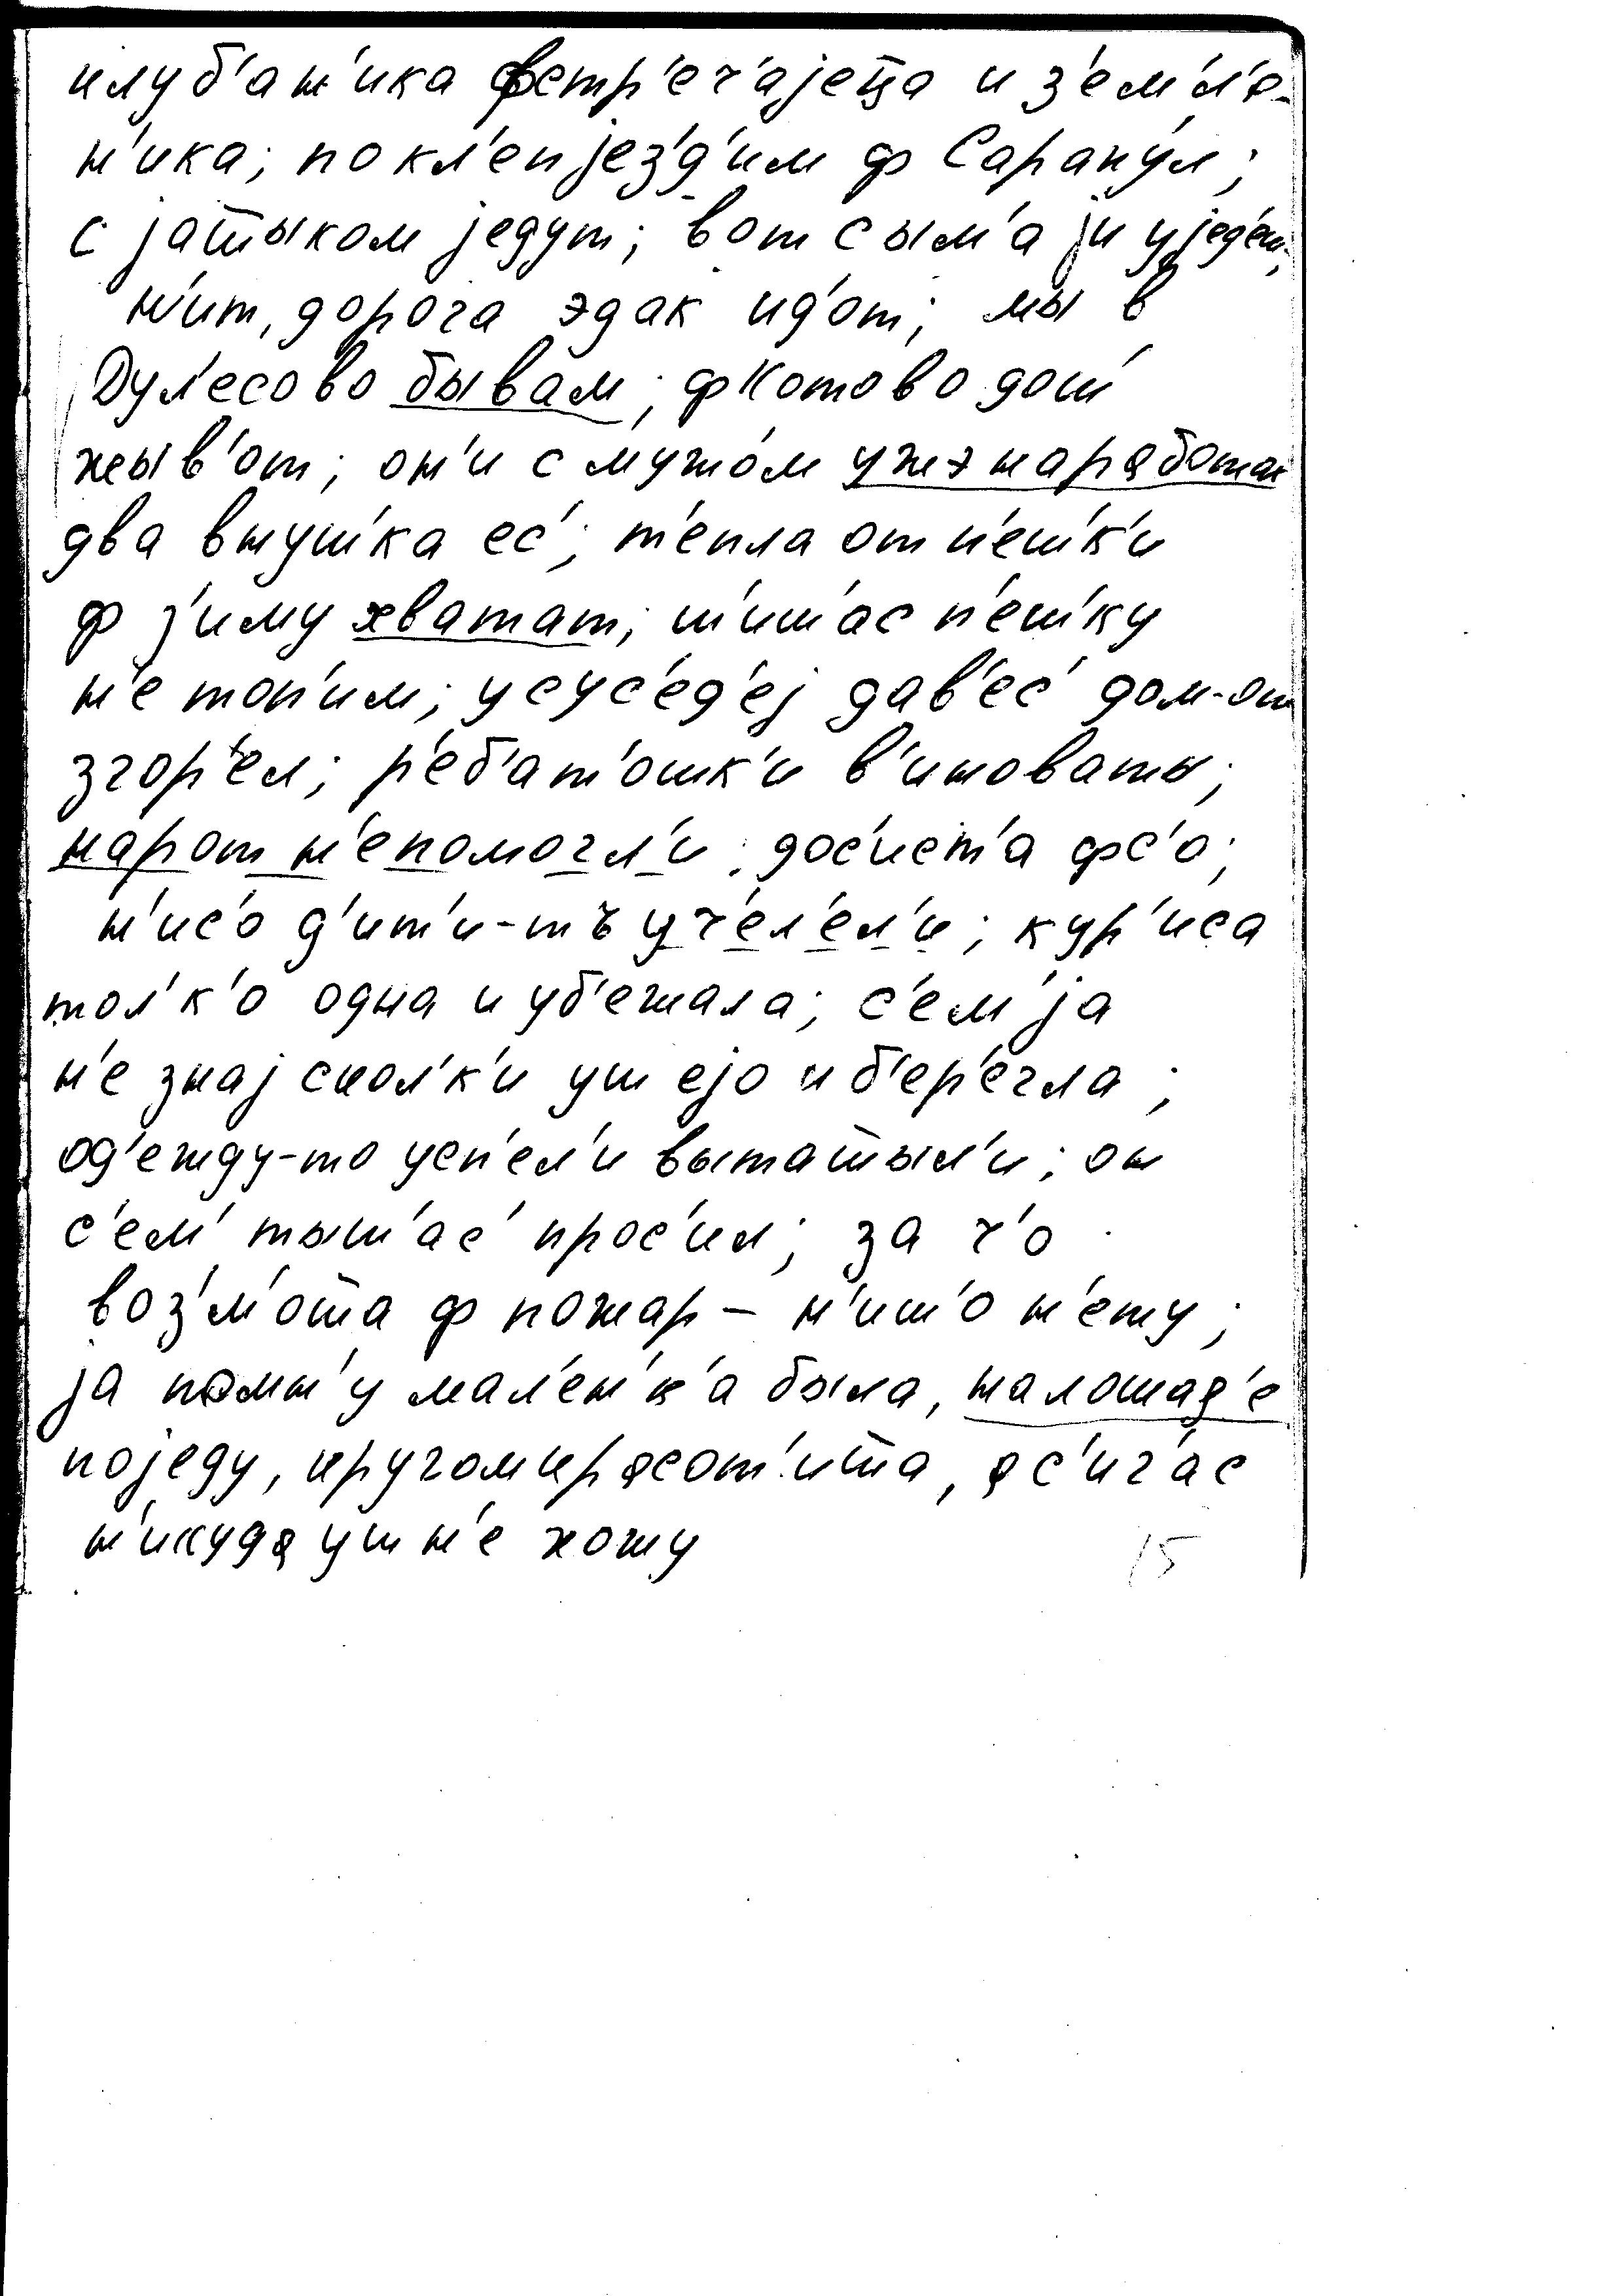 клуб'ан'ика фстр'еч'ајеца и з'ем'л'а-
н'ика; по хл'еп јез'д'им ф Сарапул;
с јатыком једут; вот с ым'а ји ујед'еш,
н'ит, дорога эдак ид'от; мы в
Дул'есово бывам; ф Котово дош'
жыв'от; он'и с мужом ужэ на работах
два внуш'ка ес'; т'епла от п'еш'к'и
ф з'иму хватат; ш'иш'ас п'еш'ку
н'е топ'им; у сус'ед'еј дав'ес' дом-от
згор'ел; р'еб'ат'ошк'и в'иноваты;
народ н'е помогл'и; дос'ист'а фс'о;
н'ис'о д'ит'и-тъ уч'ел'ел'и; кур'иса
тол'к'о одна и уб'ежала; с'ем'ја
н'е знај скол'к'и уш ејо и б'ер'егла;
од'ежду-то усп'ел'и вытатыл'и; он
с'ем' тыш'ас' прос'ил; за ч'о
воз'м'ота ф пожар – н'иш'о н'ету;
ја помн'у мал'ен'к'а была, на лошад'е
поједу, кругом красот'ита, а с'ич'ас
н'икуда уш н'е хожу
15